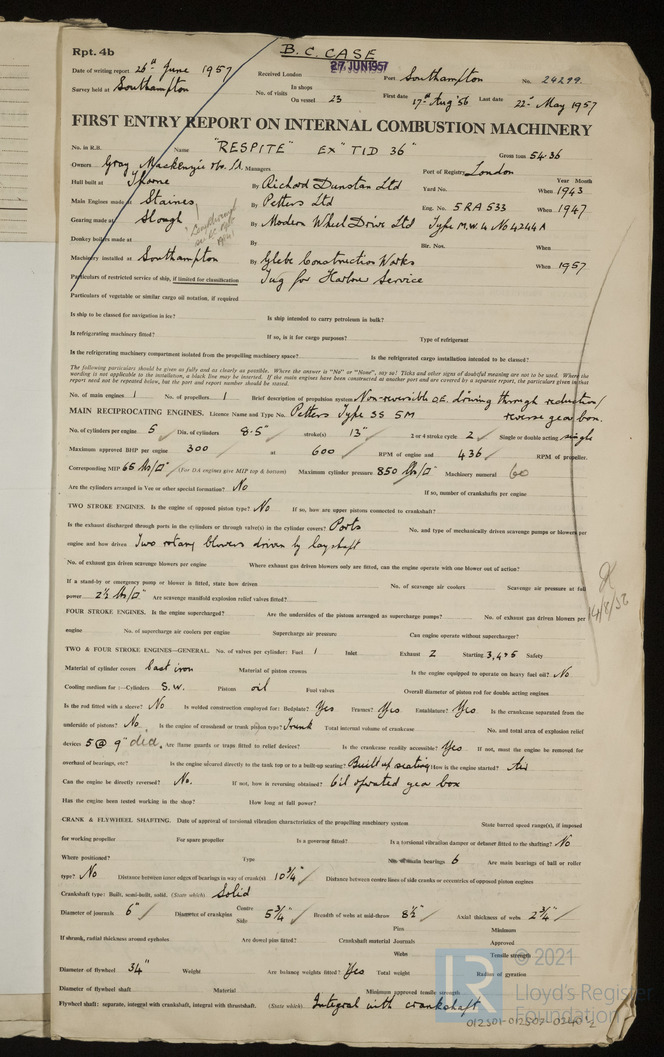 Rpt. 4b
B. C. CASE
27 JUN 1957
Date of writing report 26th June 1957 Received London Port Southampton No. 24299
Survey held at Southampton No. of visits In shops
On vessel 23 First date 17th Aug '56 Last date 22nd May 1957
FIRST ENTRY REPORT ON INTERNAL COMBUSTION MACHINERY
No. in R.B. Name "RESPITE" EX "TID 36" Gross tons 54.36
Owners Gray Mackenzie Managers Port of Registry London
Year Month
Hull built at Thorne By Richard Dunstan Ltd Yard No. When 1943
Main Engines made at Staines By Petters Ltd Eng. No. 5 RA 533 When 1947
Gearing made at Slough By Modern Wheel Drive Ltd Type M.W.4 No 4244A
Donkey boilers made at By Blr. Nos. When
Machinery installed at Southampton By Glebe Construction Works When 1957
Particulars of restricted service of ship, if limited for classification Tug for Harbour Service
Particulars of vegetable or similar cargo oil notation, if required
Is ship to be classed for navigation in ice? Is ship intended to carry petroleum in bulk?
Is refrigerating machinery fitted? If so, is it for cargo purposes? Type of refrigerant
Is the refrigerating machinery compartment isolated from the propelling machinery space? Is the refrigerated cargo installation intended to be classed?
The following particulars should be given as fully and as clearly as possible. Where the answer is "No" or "None", say so! Ticks and other signs of doubtful meaning are not to be used. Where the
wording is not applicable to the installation, a black line may be inserted. If the main engines have been constructed at another port and are covered by a separate report, the particulars given in that
report need not be repeated below, but the port and report number should be stated.
No. of main engines 1 No. of propellers 1 Brief description of propulsion system Non-reversible O.E. driving through reduction/
reverse gear box.
MAIN RECIPROCATING ENGINES. Licence Name and Type No. Petters Type 3S 5M
No. of cylinders per engine 5 Dia. of cylinders 8.5" stroke(s) 13" 2 or 4 stroke cycle 2 Single or double acting single
Maximum approved BHP per engine 300 at 600 RPM of engine and 436 RPM of propeller.
Corresponding MIP 65 lbs/□" (For DA engines give MIP top & bottom) Maximum cylinder pressure 850 lbs/□" Machinery numeral 60
Are the cylinders arranged in Vee or other special formation? No If so, number of crankshafts per engine
TWO STROKE ENGINES. Is the engine of opposed piston type? No If so, how are upper pistons connected to crankshaft?
Is the exhaust discharged through ports in the cylinders or through valve(s) in the cylinder covers? Ports No. and type of mechanically driven scavenge pumps or blowers per
engine and how driven Two rotary blowers driven by layshaft
No. of exhaust gas driven scavenge blowers per engine Where exhaust gas driven blowers only are fitted, can the engine operate with one blower out of action?
If a stand-by or emergency pump or blower is fitted, state how driven No. of scavenge air coolers Scavenge air pressure at full
power 2½ lbs/□" Are scavenge manifold explosion relief valves fitted?
FOUR STROKE ENGINES. Is the engine supercharged? Are the undersides of the pistons arranged as supercharge pumps? No. of exhaust gas driven blowers per
engine No. of supercharge air coolers per engine Supercharge air pressure Can engine operate without supercharger?
TWO & FOUR STROKE ENGINES—GENERAL. No. of valves per cylinder: Fuel 1 Inlet Exhaust 2 Starting 3,4 & 5 Safety
Material of cylinder covers Cast iron Material of piston crowns Is the engine equipped to operate on heavy fuel oil? No
Cooling medium for :—Cylinders S.W. Pistons oil Fuel valves Overall diameter of piston rod for double acting engines
Is the rod fitted with a sleeve? No Is welded construction employed for: Bedplate? Yes Frames? Yes Entablature? Yes Is the crankcase separated from the
underside of pistons? No Is the engine of crosshead or trunk piston type? Trunk Total internal volume of crankcase No. and total area of explosion relief
devices 5 @ 9" dia. Are flame guards or traps fitted to relief devices? Is the crankcase readily accessible? Yes If not, must the engine be removed for
overhaul of bearings, etc? Is the engine secured directly to the tank top or to a built-up seating? Built up seating How is the engine started? Air
Can the engine be directly reversed? No. If not, how is reversing obtained? Oil oprated gear box
Has the engine been tested working in the shop? How long at full power?
CRANK & FLYWHEEL SHAFTING. Date of approval of torsional vibration characteristics of the propelling machinery system State barred speed range(s), if imposed
for working propeller For spare propeller Is a governor fitted? Is a torsional vibration damper or detuner fitted to the shafting? No
Where positioned? Type No. of main bearings 6 Are main bearings of ball or roller
type? No Distance between inner edges of bearings in way of crank(s) 10 3/4" Distance between centre lines of side cranks or eccentrics of opposed piston engines
Crankshaft type: Built, semi-built, solid. (State which) Solid
Diameter of journals 6" Diameter of crankpins Centre 5 3/4" Breadth of webs at mid-throw 8½" Axial thickness of webs 2 3/4"
Side
If shrunk, radial thickness around eyeholes Are dowel pins fitted? Crankshaft material Pins Minimum
Journals Approved
Webs Tensile strength
Diameter of flywheel 34" Weight Are balance weights fitted? Yes Total weight Radius of gyration
Diameter of flywheel shaft Material Minimum approved tensile strength
Flywheel shaft: separate, integral with crankshaft, integral with thrustshaft. (State which) Integral with crankshaft
LR © 2021
Lloyd's Register
Foundation
012501-012507-0240-2